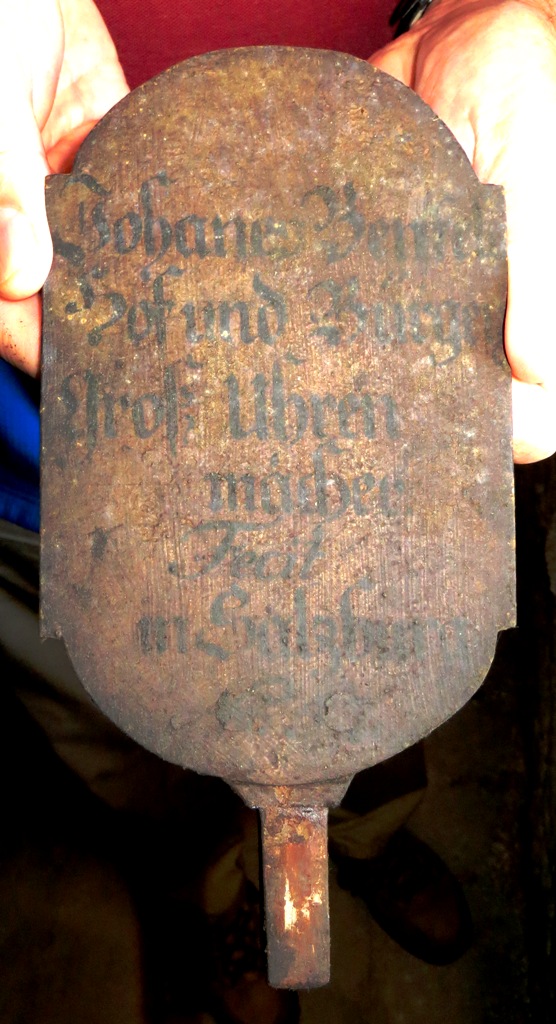 Johanes Bentele
Hof und Bürger
Groß Uhren
macher
Fecit
in Salzburg